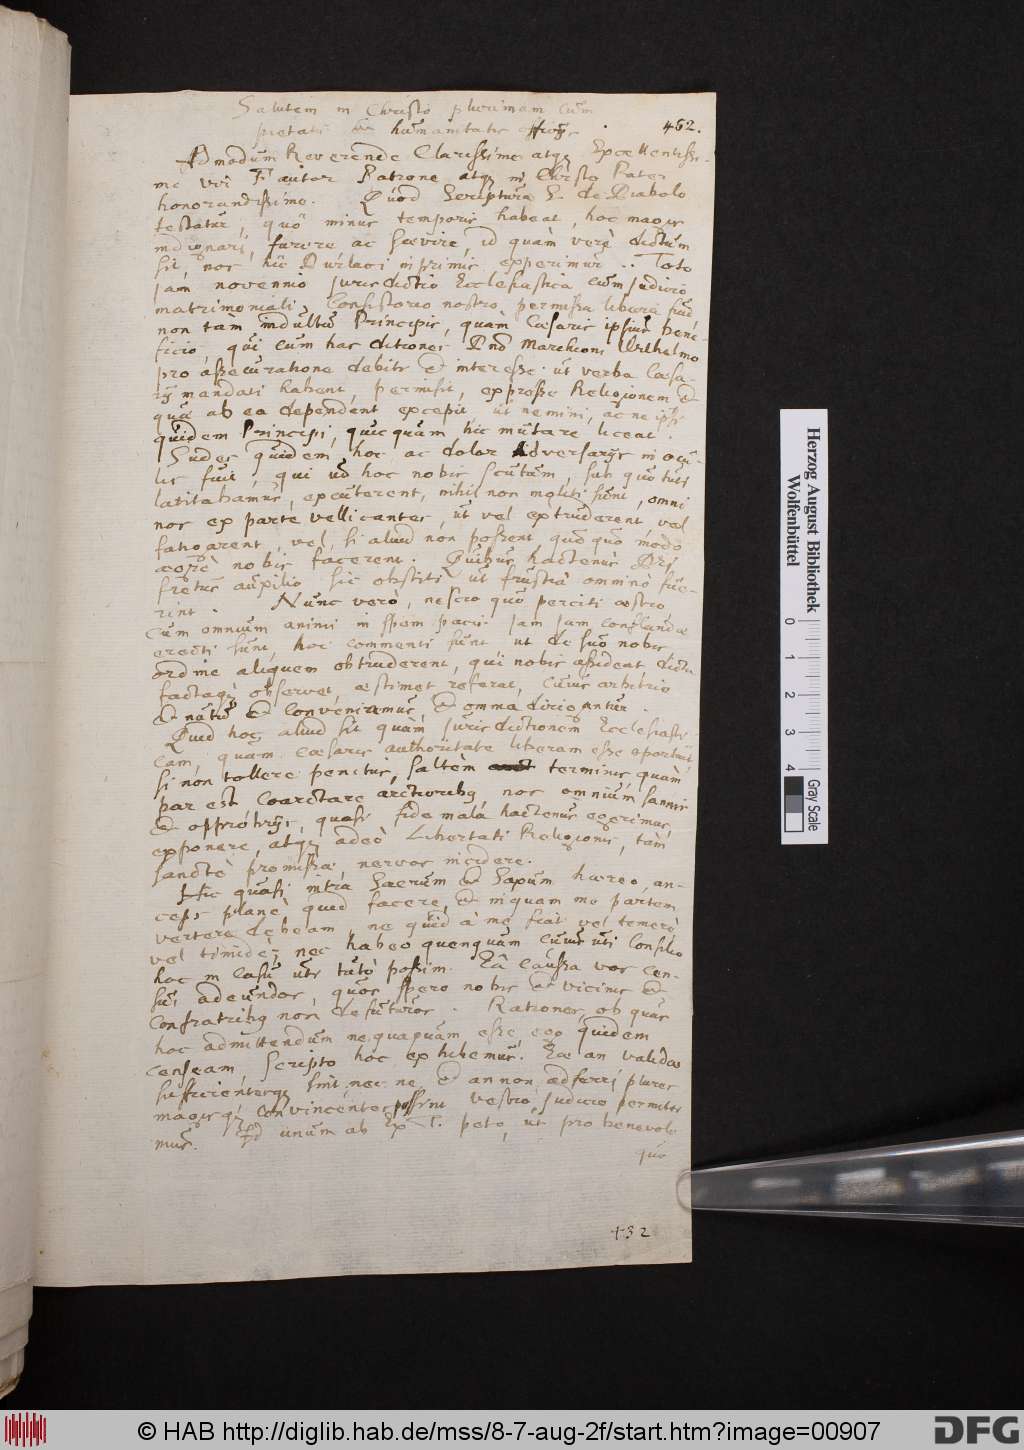 Salutem in Christo plurimam cum
pietatis et humanitatis officijs.
462.
Admodum Reverende Clarissime atq Excellentissi-
me vir Fautor Patrone atq in Christo Pater
honorandissime. Quod Scriptura S. de Diabolo
testatur, quò minus temporis habeat, hoc magis
indignari, furere ac sævire, id quàm verè dictum
sit, nos hîc Durlaci inprimis experimur. Toto
jam novennio Jurisdictio Ecclesiastica cum judicio
matrimoniali, Consistorio nostro, permissa libera fuit,
non tàm indultu Principis, quàm Cæsaris ipsius bene-
ficio, qui cum has ditiones Dno Marchioni Wilhelmo
pro assecuratione debiti et interesse, ut verba Cæsa-
rij mandati habent, permisit, expresse Religionem et
quæ ab ea dependent excepit, ut nemini, ac ne ipsi
quidem Principi, quicquam hîc mutare liceat.
Sudes quidem hoc ac dolor Adversarijs in ocu-
lis fuit, qui ut hoc nobis scutum, sub quo tuti
latitabamus, excuterent, nihil non moliti sunt, omni
nos ex parte vellicantes, ut vel extruderent, vel
fatigarent, vel, si aliud non possent, quoquo modo
ægrè nobis facerent. Quibus hactenus Dei
fretus auxilio sic obstiti, ut frustrà omninò fue-
rint. Nunc verò, nescio quo perciti œstro,
cum omnium animi in spem pacis jam jam conflandæ
erecti sunt, hoc commenti sunt, ut de suo nobis
ordine aliquem obtruderent, qui nobis assideat dicta
factaq observet, æstimet, referat, cuius arbitrio
et nutu et conveniremus, et omnia dirigantur.
Quid hoc aliud sit quàm Jurisdictionem Ecclesiasti-
cam, quam Cæsaris authoritate liberam esse oportuit,
si non tollere penitus, saltèm terminis, quàm
par est coarctare arctioribq nos omnium sannis
et opprobrijs, quasi fide malâ hactenus egerimus,
exponere, atq adeò Libertati Religionis, tàm
sanctè promissæ, nervos incidere.
Hîc quasi intra Sacrum et Saxum hæreo, an-
ceps planè quid facere, et in quam me partem
vertere debeam, ne quid à me fiat vel temerè
vel timidè; nec habeo quenquam cuius uti consilio
hoc in casu uti tutò possim. Eâ caussa vos cen-
sui adeundos, quos spero nobis ut vicinis et
Confratribq non defuturos. Rationes, ob quas
hoc admittendum nequaquam esse, ego quidem
censeam, scripto hoc exhibemus. Eæ an validæ
sufficientesq sint nec ne, et an non adferri plures
magisq convincentes possint vestro judicio permitti-
mus. Id unum ab Ex. T. peto, ut pro benevolo
quo
432
Herzog August Bibliothek
Wolfenbüttel
0 1 2 3 4
Gray Scale
© HAB http://diglib.hab.de/mss/8-7-aug-2f/start.htm?image=00907
DFG